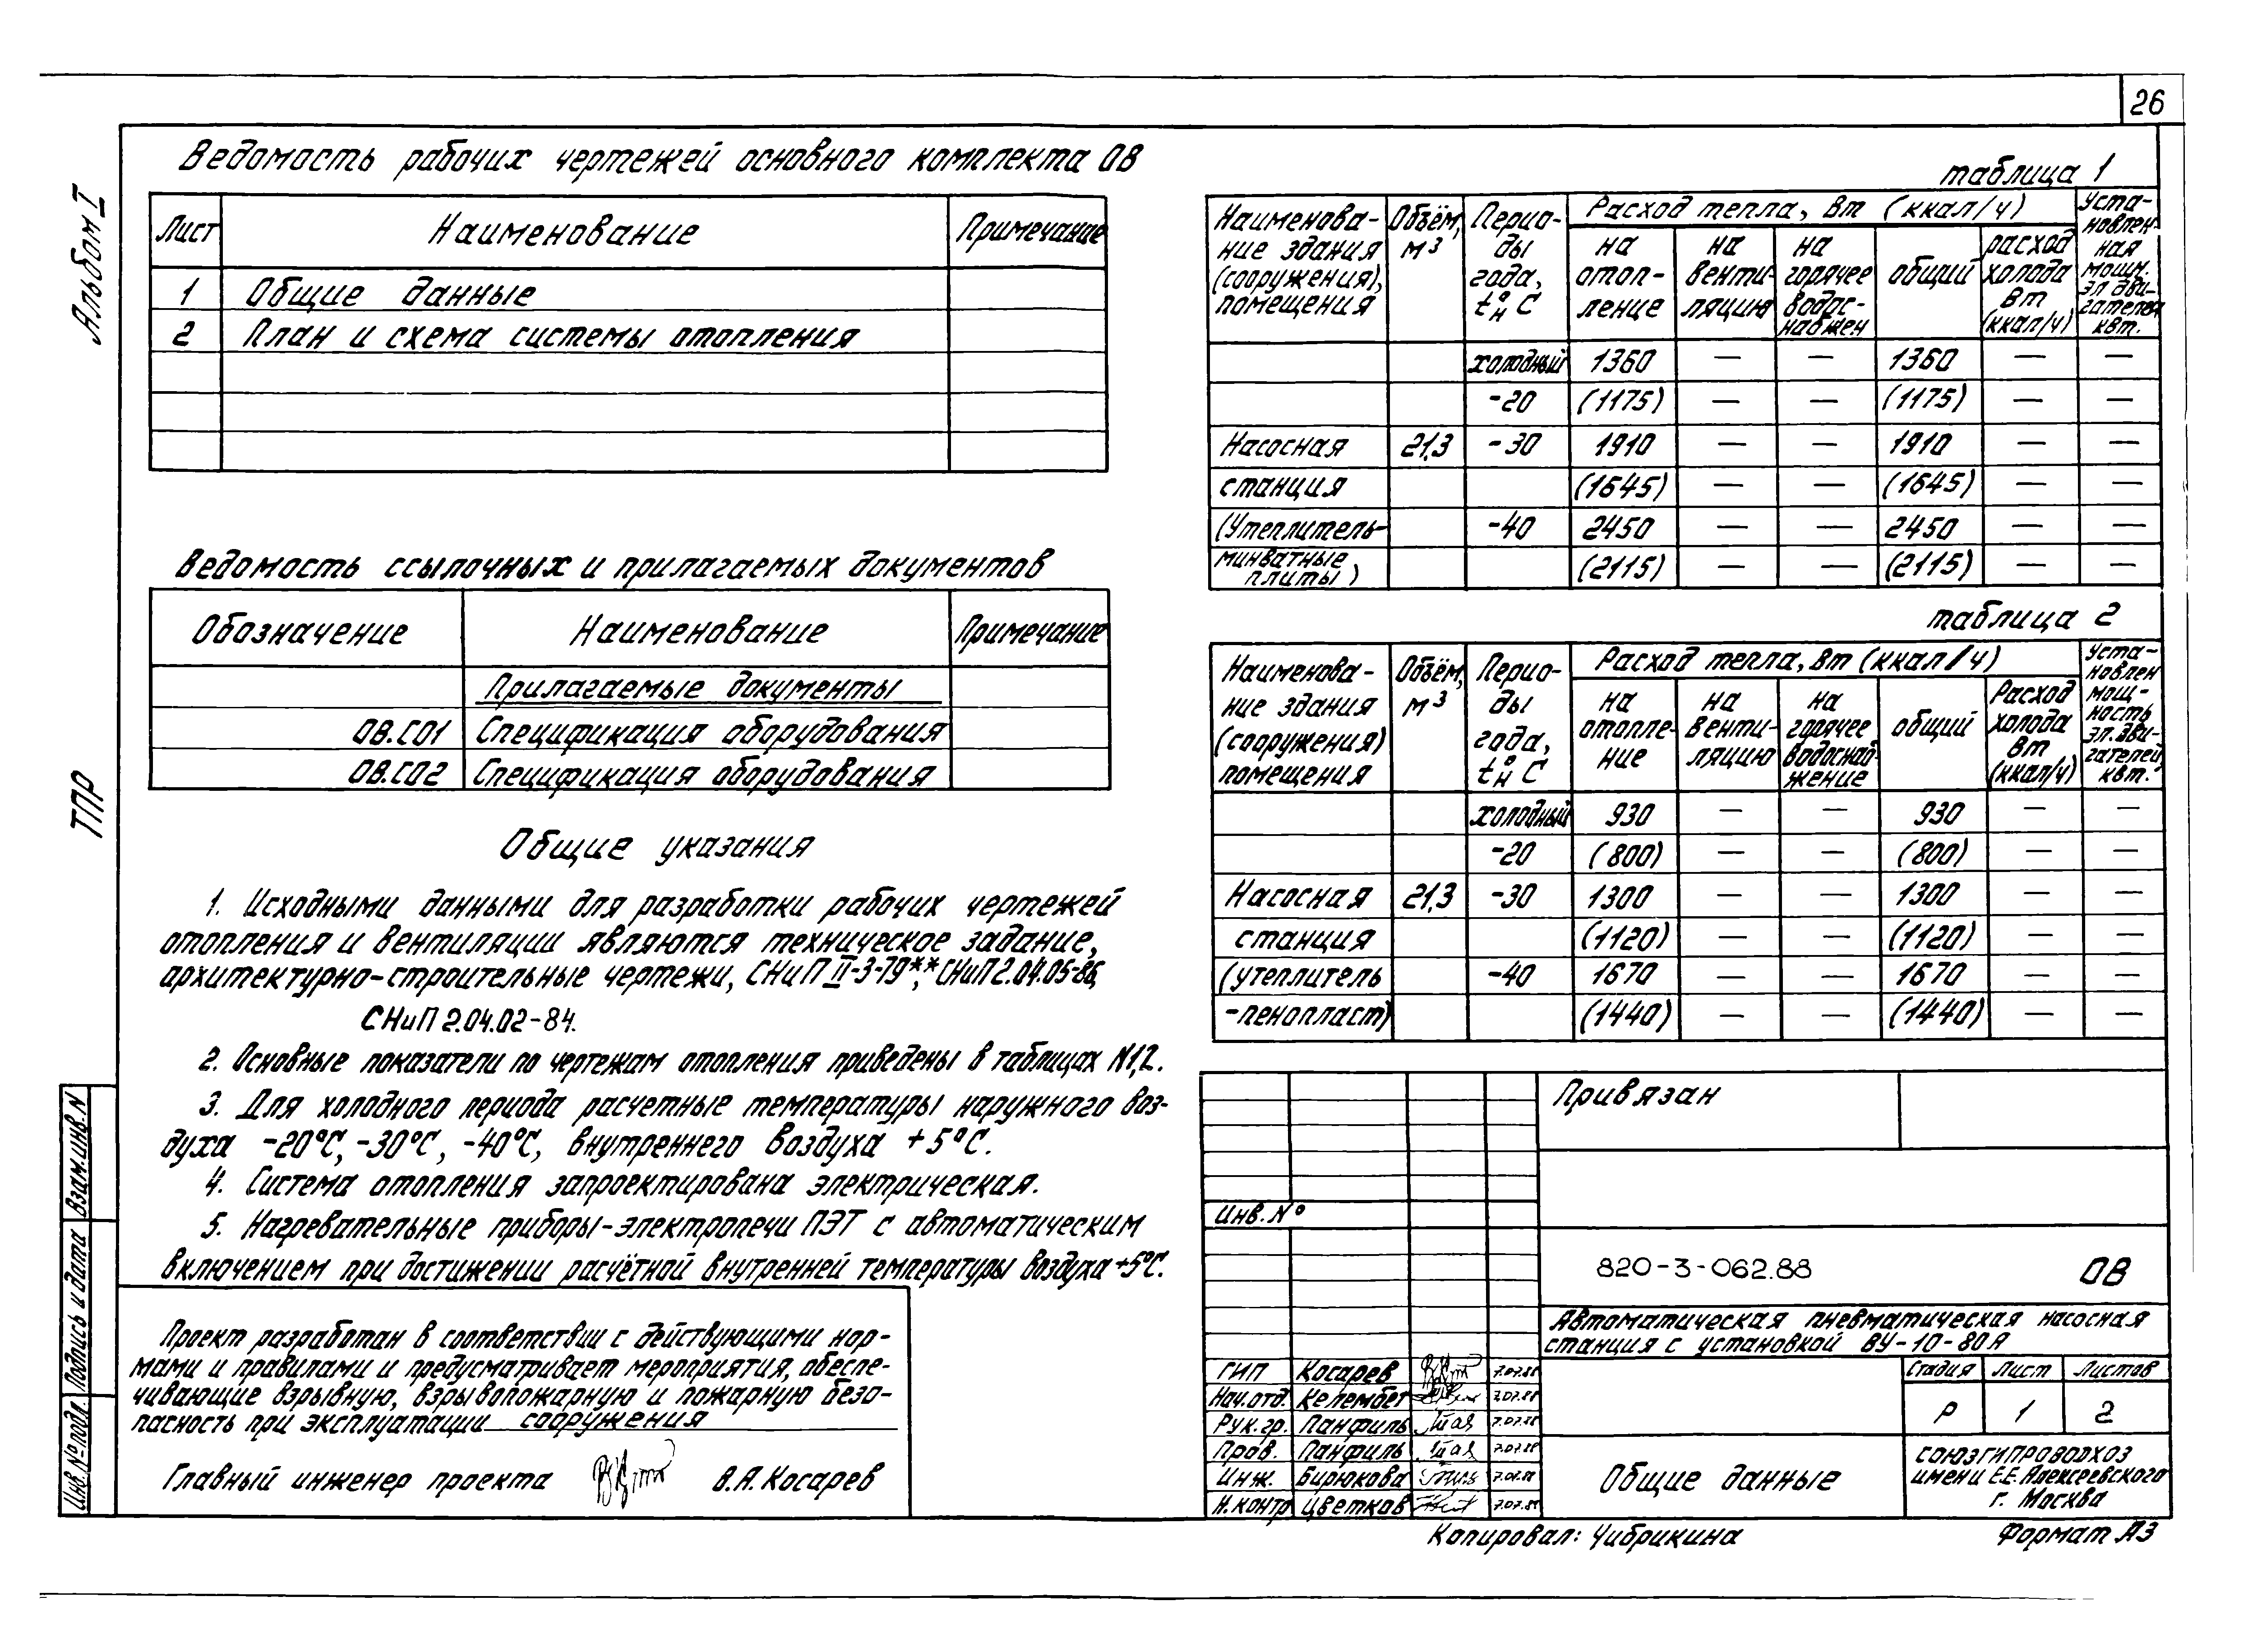 26
Альбом I
ТПР
Ведомость рабочих чертежей основного комплекта ОВ
Лист Наименование Примечание
1 Общие данные
2 План и схема системы отопления
Ведомость ссылочных и прилагаемых документов
Обозначение Наименование Примечание
Прилагаемые документы
ОВ.СО1 Спецификация оборудования
ОВ.СО2 Спецификация оборудования
Общие указания
1. Исходными данными для разработки рабочих чертежей
отопления и вентиляции являются техническое задание,
архитектурно-строительные чертежи, СНиП II-3-79**, СНиП 2.04.05-86,
СНиП 2.04.02-84.
2. Основные показатели по чертежам отопления приведены в таблицах N1,2.
3. Для холодного периода расчетные температуры наружного воз-
духа -20°С, -30°С, -40°С, внутреннего воздуха +5°С.
4. Система отопления запроектирована электрическая.
5. Нагревательные приборы-электропечи ПЭТ с автоматическим
включением при достижении расчётной внутренней температуры воздуха +5°С.
Проект разработан в соответствии с действующими нор-
мами и правилами и предусматривает мероприятия, обеспе-
чивающие взрывную, взрывопожарную и пожарную безо-
пасность при эксплуатации сооружения
Главный инженер проекта В.А.Косарев
Взам.инв.N
Подпись и дата
Инв.№ подл.
таблица 1
Наименова-
ние здания
(сооружения),
помещения
Объём,
м³
Перио-
ды
года,
tн°С
Расход тепла, Вт (ккал/ч)
на
отоп-
ление
на
венти-
ляцию
на
горячее
водос-
набжен
общий
расход
холода
Вт
(ккал/ч)
Уста-
новлен-
ная
мощн.
эл.дви-
гателей
квт.
холодный 1360 — — 1360 — —
-20 (1175) — — (1175) — —
Насосная 21,3 -30 1910 — — 1910 — —
станция (1645) — — (1645) — —
(Утеплитель- -40 2450 — — 2450 — —
минватные
плиты) (2115) — — (2115) — —
таблица 2
Наименова-
ние здания
(сооружения)
помещения
Объём,
м³
Перио-
ды
года,
tн°С
Расход тепла, Вт (ккал/ч)
на
отопле-
ние
на
венти-
ляцию
на
горячее
водоснаб-
жение
общий
Расход
холода
Вт
(ккал/ч)
Уста-
новлен
мощ-
ность
эл.дви-
гателей,
квт.
холодный 930 — — 930 — —
-20 (800) — — (800) — —
Насосная 21,3 -30 1300 — — 1300 — —
станция (1120) — — (1120) — —
(утеплитель -40 1670 — — 1670 — —
-пенопласт) (1440) — — (1440) — —
Привязан
Инв.N°
820-3-062.88 ОВ
Автоматическая пневматическая насосная
станция с установкой ВУ-10-80А
ГИП Косарев 7.07.88
Нач.отд. Келембет 7.07.88
Рук.гр. Панфиль 7.07.88
Пров. Панфиль 7.07.88
Инж. Бирюкова 7.07.88
Н.контр Цветков 7.07.88
Стадия Лист Листов
Р 1 2
Общие данные
СОЮЗГИПРОВОДХОЗ
имени Е.Е.Алексеевского
г. Москва
Копировал: Чибрикина Формат А3